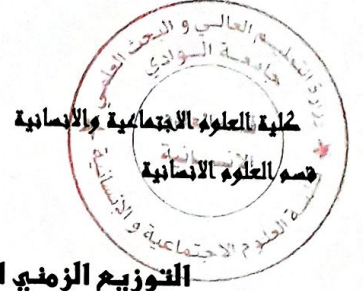 وزارة التعليم العالي و البحث العلمي
جامعة الوادي
كلية العلوم الاجتماعية والانسانية
قسم العلوم الانسانية
كلية العلوم الاجتماعية و الإنسانية
التوزيع الزمني